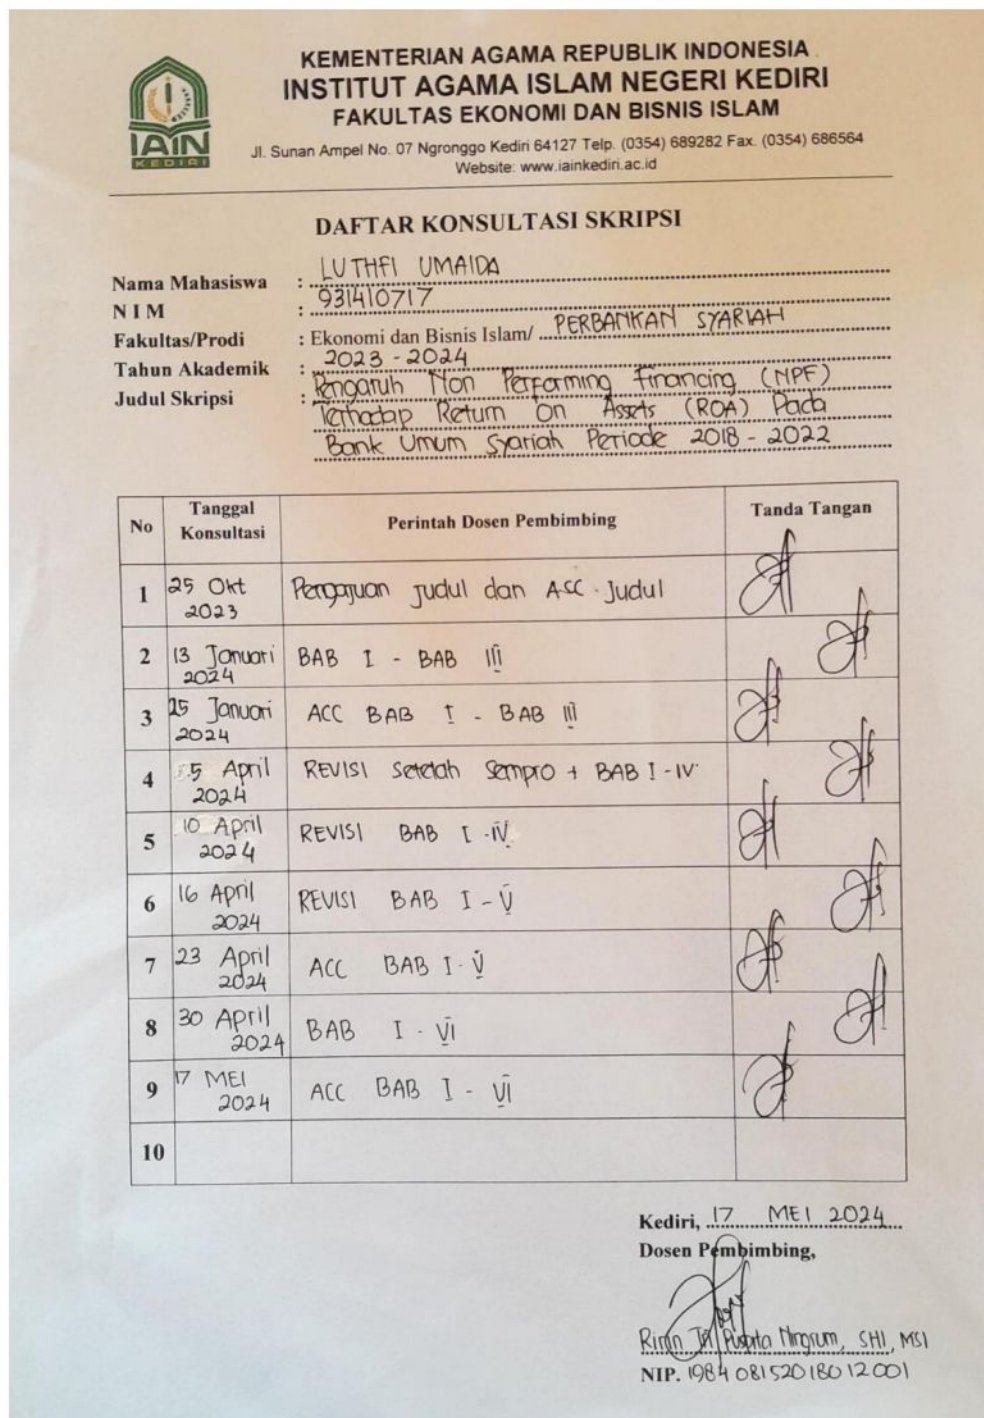 IAIN
KEDIRI
KEMENTERIAN AGAMA REPUBLIK INDONESIA
INSTITUT AGAMA ISLAM NEGERI KEDIRI
FAKULTAS EKONOMI DAN BISNIS ISLAM
Jl. Sunan Ampel No. 07 Ngronggo Kediri 64127 Telp. (0354) 689282 Fax. (0354) 686564
Website: www.iainkediri.ac.id
DAFTAR KONSULTASI SKRIPSI
Nama Mahasiswa : LUTHFI UMAIDA
N I M : 931410717
Fakultas/Prodi : Ekonomi dan Bisnis Islam/ PERBANKAN SYARIAH
Tahun Akademik : 2023 - 2024
Judul Skripsi : Pengaruh Non Performing Financing (NPF)
Terhadap Return On Assets (ROA) Pada
Bank Umum Syariah Periode 2018 - 2022
No Tanggal Konsultasi Perintah Dosen Pembimbing Tanda Tangan
1 25 Okt 2023 Pengajuan judul dan ACC Judul
2 13 Januari 2024 BAB I - BAB III
3 25 Januari 2024 ACC BAB I - BAB III
4 5 April 2024 REVISI Setelah Sempro + BAB I - IV
5 10 April 2024 REVISI BAB I - IV
6 16 April 2024 REVISI BAB I - V
7 23 April 2024 ACC BAB I - V
8 30 April 2024 BAB I - VI
9 17 MEI 2024 ACC BAB I - VI
10
Kediri, 17 MEI 2024
Dosen Pembimbing,
Ningrum, SHI, MSI
NIP. 198408152018012001